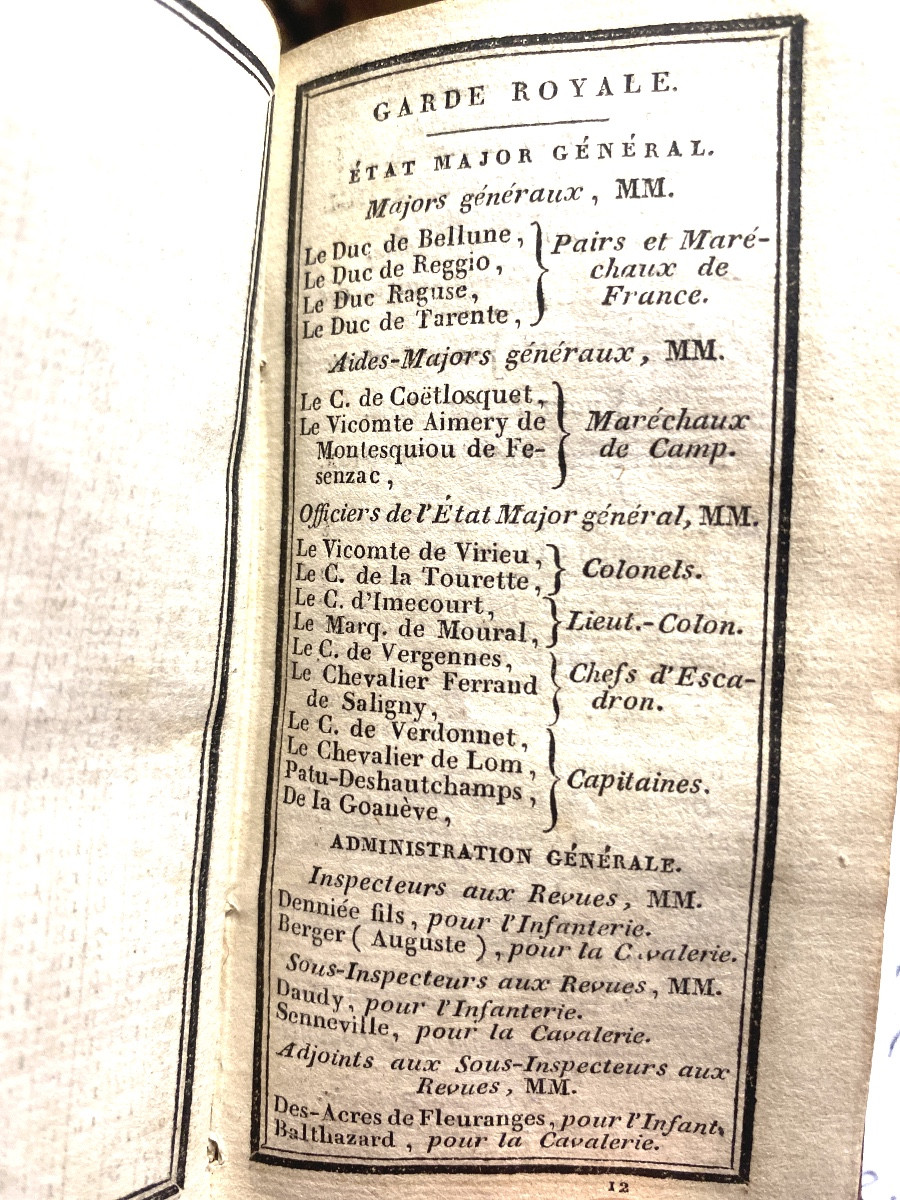 GARDE ROYALE.
ÉTAT MAJOR GÉNÉRAL.
Majors généraux, MM.
Le Duc de Bellune,
Le Duc de Reggio,
Le Duc Raguse,
Le Duc de Tarente,
Pairs et Maré-
chaux de
France.
Aides-Majors généraux, MM.
Le C. de Coëtlosquet,
Le Vicomte Aimery de
Montesquiou de Fe-
senzac,
Maréchaux
de Camp.
Officiers de l'État Major général, MM.
Le Vicomte de Virieu,
Le C. de la Tourette,
Colonels.
Le C. d'Imecourt,
Le Marq. de Moural,
Lieut.-Colon.
Le C. de Vergennes,
Le Chevalier Ferraud
de Saligny,
Chefs d'Esca-
dron.
Le C. de Verdonnet,
Le Chevalier de Lom,
Patu-Deshautchamps,
De la Goauève,
Capitaines.
ADMINISTRATION GÉNÉRALE.
Inspecteurs aux Revues, MM.
Denniée fils, pour l'Infanterie.
Berger (Auguste), pour la Cavalerie.
Sous-Inspecteurs aux Revues, MM.
Daudy, pour l'Infanterie.
Senneville, pour la Cavalerie.
Adjoints aux Sous-Inspecteurs aux
Revues, MM.
Des-Acres de Fleuranges, pour l'Infant.
Balthazard, pour la Cavalerie.
12